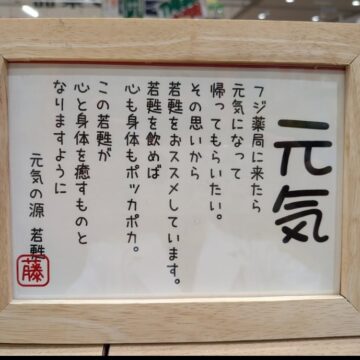 元気
フジ薬局に来たら
元気になって
帰ってもらいたい。
その思いから
若甦をおススメしています。
若甦を飲めば
心も身体もポッカポカ。
この若甦が
心と身体を癒すものと
なりますように
元気の源 若甦
藤